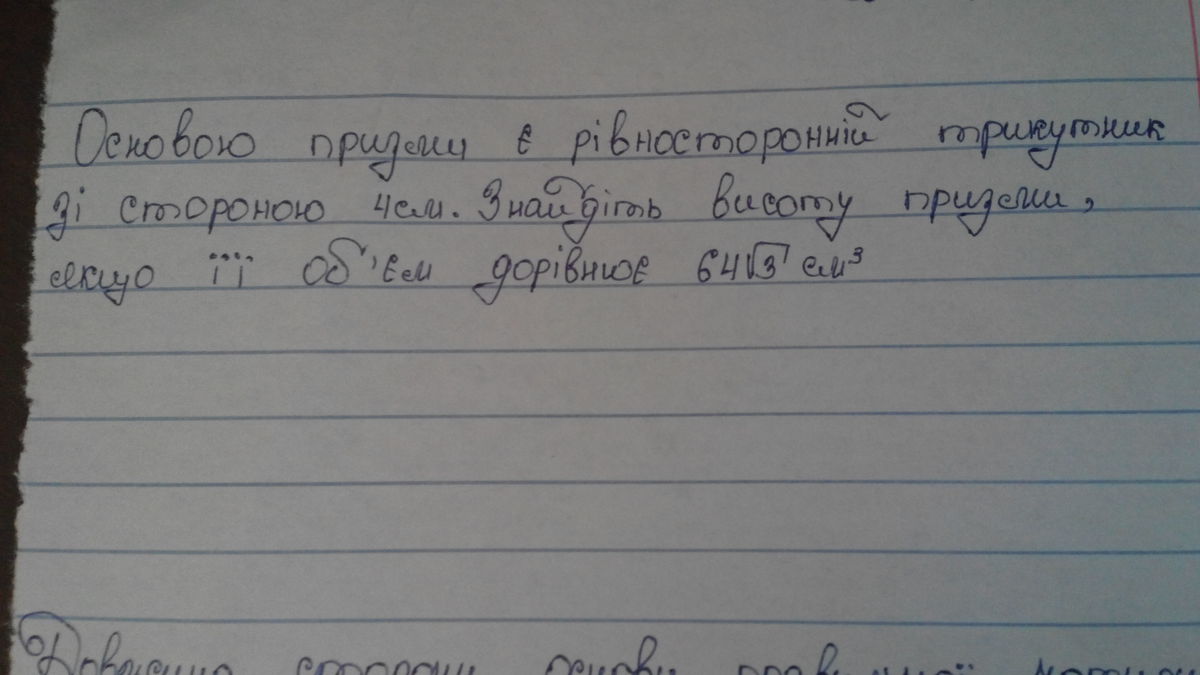 Основою призми є рівносторонній трикутник
зі стороною 4см. Знайдіть висоту призми,
якщо її об'єм дорівнює 64√3 см³
Довжина сторони основи